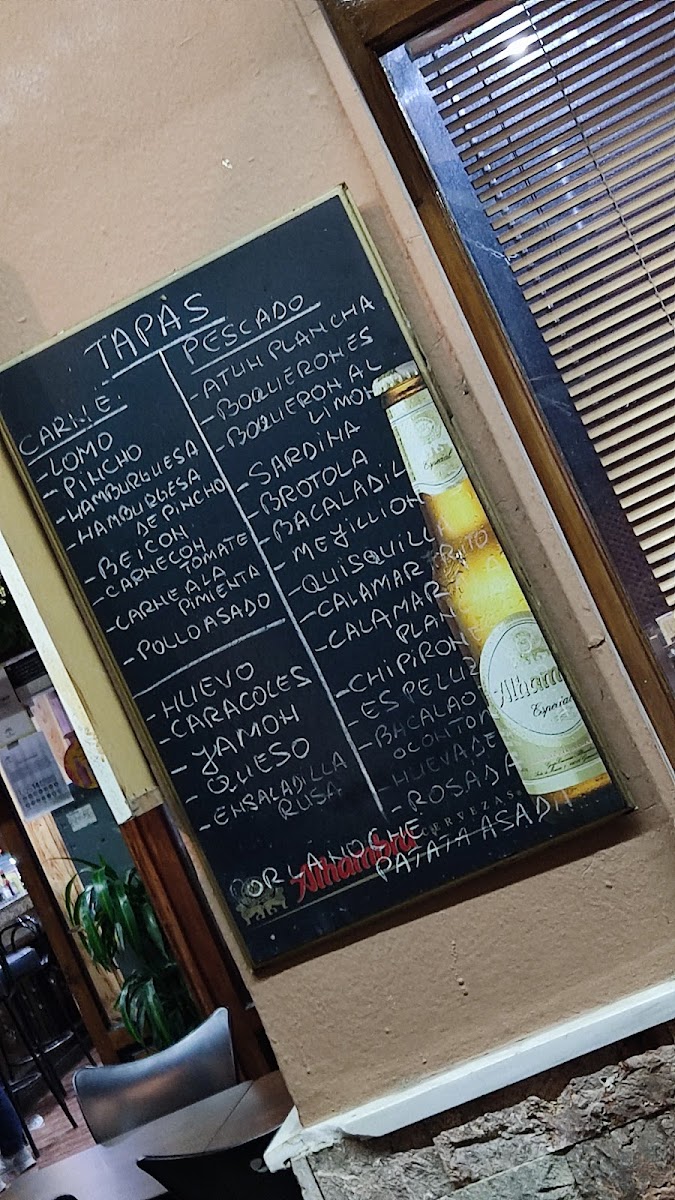 TAPAS
CARNE
- LOMO
- PINCHO
- HAMBURGUESA
- HAMBURGESA
DE PINCHO
- BEICON
- CARNE CON
TOMATE
- CARNE A LA
PIMIENTA
- POLLO ASADO
- HUEVO
- CARACOLES
- JAMON
- QUESO
- ENSALADILLA
RUSA
PESCADO
- ATUN PLANCHA
- BOQUERONES
- BOQUERON AL
LIMON
- SARDINA
- BROTOLA
- BACALADIL
- MEJILLION
- QUISQUILLA
- CALAMAR FRITO
- CALAMAR A
PLAN
- CHIPIRONE
- ESPELUZ
- BACALAO
O CON TOM
- HUEVA DE
- ROSADA
POR LA NOCHE
PATATA ASADA
Alhambra
CERVEZAS
Especial
Alhambra
Especial